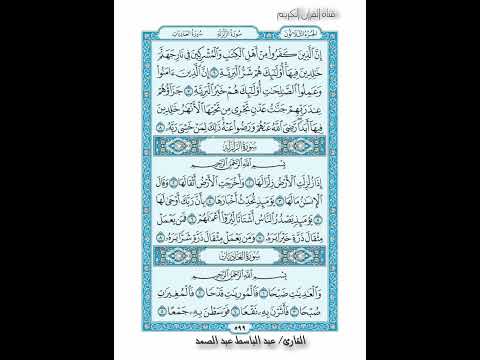 قناة القرآن الكريم
الجزء الثلاثون سورة الزلزلة سورة العاديات
إِنَّ ٱلَّذِينَ كَفَرُوا۟ مِنْ أَهْلِ ٱلْكِتَـٰبِ وَٱلْمُشْرِكِينَ فِى نَارِ جَهَنَّمَ
خَـٰلِدِينَ فِيهَآ أُو۟لَـٰٓئِكَ هُمْ شَرُّ ٱلْبَرِيَّةِ ٦ إِنَّ ٱلَّذِينَ ءَامَنُوا۟
وَعَمِلُوا۟ ٱلصَّـٰلِحَـٰتِ أُو۟لَـٰٓئِكَ هُمْ خَيْرُ ٱلْبَرِيَّةِ ٧ جَزَآؤُهُمْ
عِندَ رَبِّهِمْ جَنَّـٰتُ عَدْنٍ تَجْرِى مِن تَحْتِهَا ٱلْأَنْهَـٰرُ خَـٰلِدِينَ
فِيهَآ أَبَدًا رَّضِىَ ٱللَّهُ عَنْهُمْ وَرَضُوا۟ عَنْهُ ذَٰلِكَ لِمَنْ خَشِىَ رَبَّهُۥ ٨
سورة الزلزلة
بِسْمِ ٱللَّهِ ٱلرَّحْمَـٰنِ ٱلرَّحِيمِ
إِذَا زُلْزِلَتِ ٱلْأَرْضُ زِلْزَالَهَا ١ وَأَخْرَجَتِ ٱلْأَرْضُ أَثْقَالَهَا ٢ وَقَالَ
ٱلْإِنسَـٰنُ مَا لَهَا ٣ يَوْمَئِذٍ تُحَدِّثُ أَخْبَارَهَا ٤ بِأَنَّ رَبَّكَ أَوْحَىٰ لَهَا
٥ يَوْمَئِذٍ يَصْدُرُ ٱلنَّاسُ أَشْتَاتًا لِّيُرَوْا۟ أَعْمَـٰلَهُمْ ٦ فَمَن يَعْمَلْ
مِثْقَالَ ذَرَّةٍ خَيْرًا يَرَهُۥ ٧ وَمَن يَعْمَلْ مِثْقَالَ ذَرَّةٍ شَرًّا يَرَهُۥ ٨
سورة العاديات
بِسْمِ ٱللَّهِ ٱلرَّحْمَـٰنِ ٱلرَّحِيمِ
وَٱلْعَـٰدِيَـٰتِ ضَبْحًا ١ فَٱلْمُورِيَـٰتِ قَدْحًا ٢ فَٱلْمُغِيرَٰتِ
صُبْحًا ٣ فَأَثَرْنَ بِهِۦ نَقْعًا ٤ فَوَسَطْنَ بِهِۦ جَمْعًا ٥
٥٩٩
القارئ/ عبد الباسط عبد الصمد